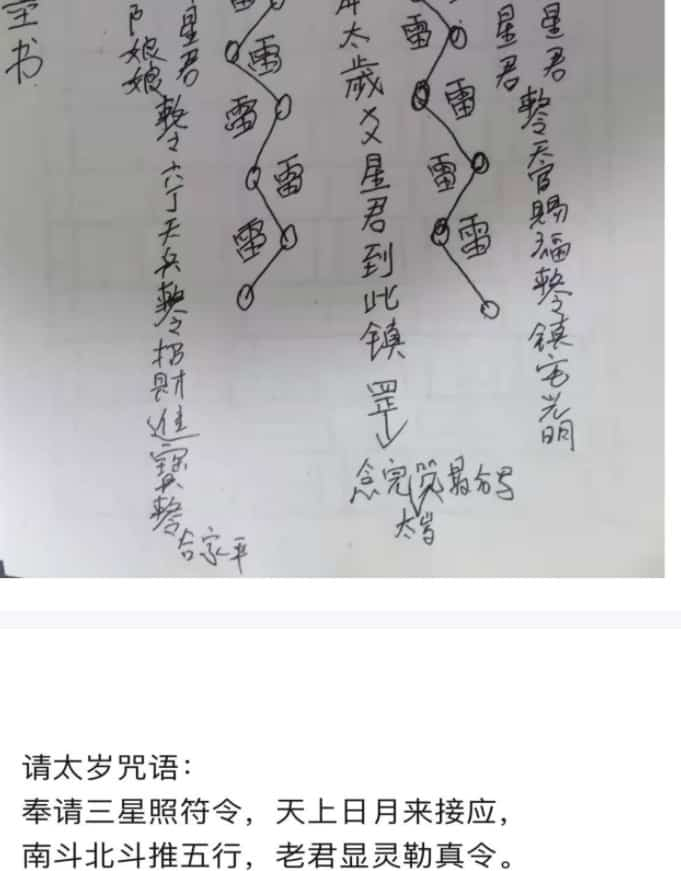 星君
星君
敕令天官赐福敕令镇宅光明
雷
雷
雷
雷
太歲
星君到此镇
罡
念完
太岁
雷
雷
雷
雷
雷
星君
娘娘
敕令六丁天兵敕令招财進寳敕令
合家平
书
请太岁咒语：
奉请三星照符令，天上日月来接应，
南斗北斗推五行，老君显灵勒真令。